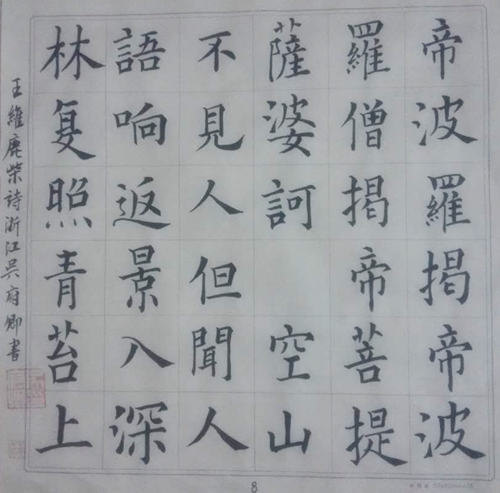 帝波羅揭帝波
羅僧揭帝菩提
薩婆訶 空山
不見人但聞人
語响返景入深
林复照青苔上
王維鹿柴詩浙江吳府卿書
8